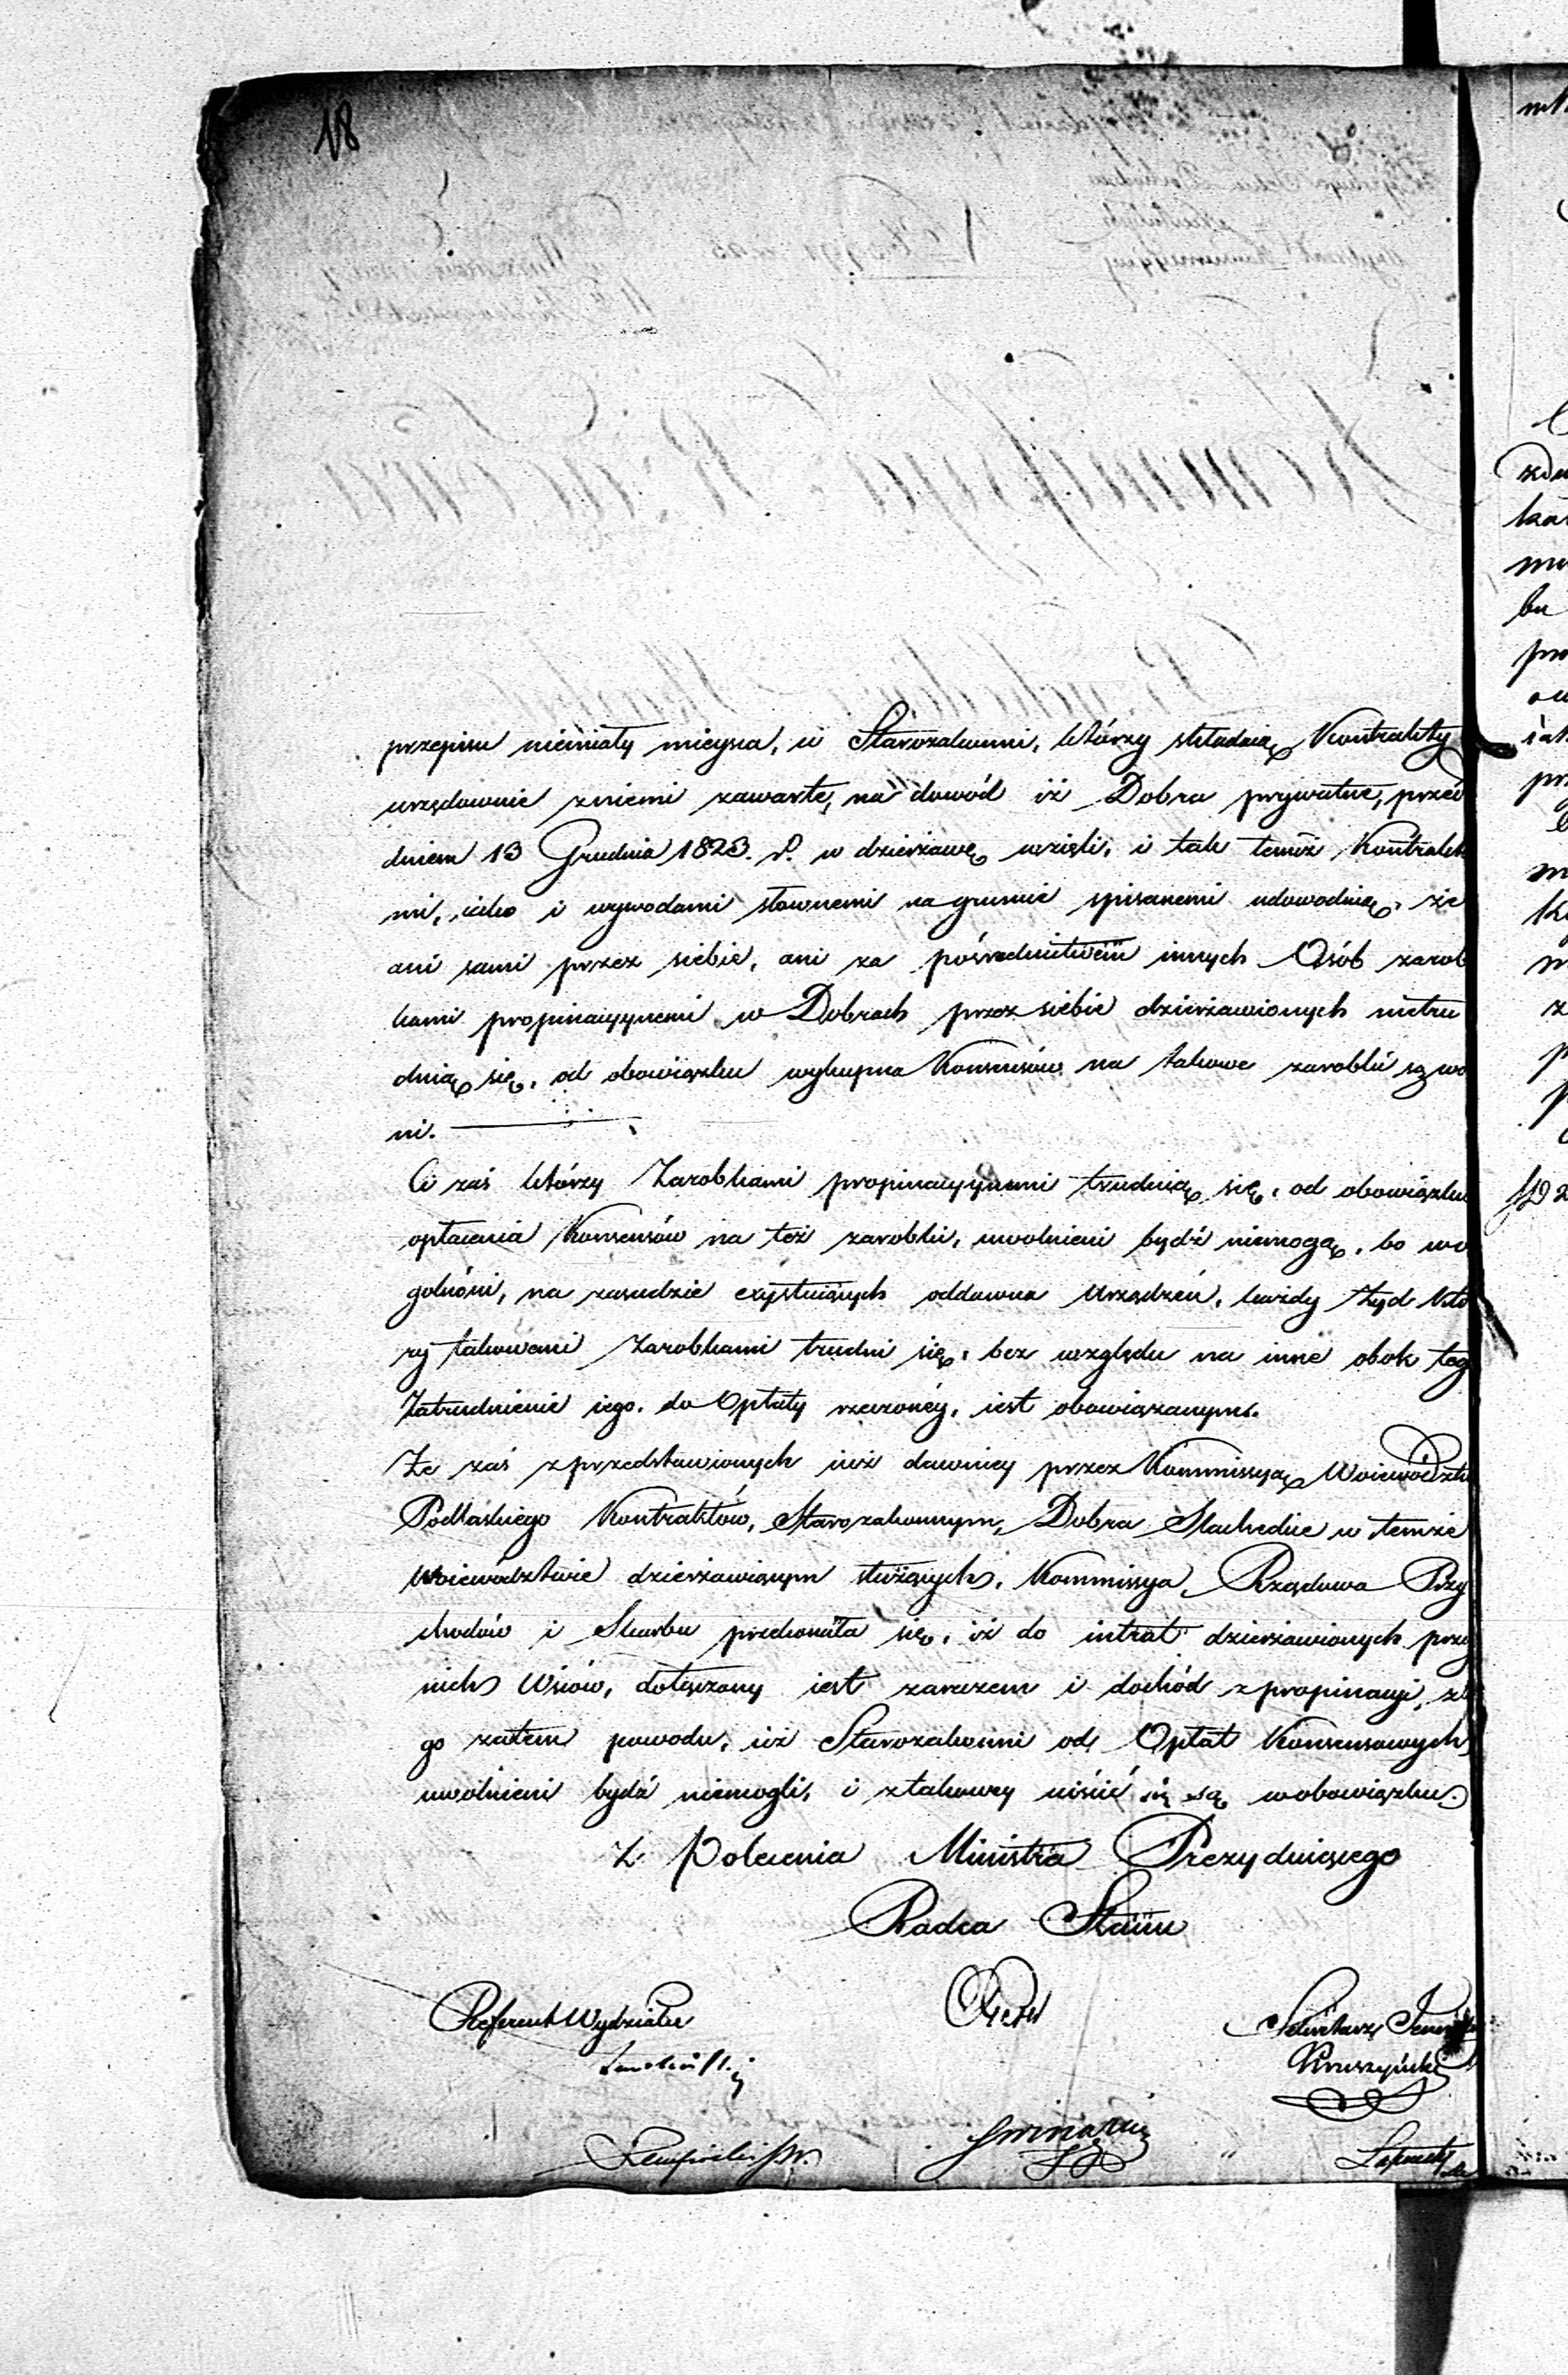 18
przepisu niemiały mieysca, iż Starozakonni, którzy składaią Kontrakty
urzędownie zniemi zawarte, na dowód iż Dobra prywatne, przed
dniem 13 Grudnia 1823. r. w dzierżawę wzięli, i tak temiż Kontrakta
mi, iako i wywodami słownemi na gruncie spisanemi udowodnią, że
ani sami przez siebie, ani za pośrednictwem innych Osób zarob
kami propinacyynemi w Dobrach przez siebie dzierżawionych nietru
dnią się, od obowiązku wykupna Konsensów na takowe zarobki są wol
ni.
Ci zaś którzy Zarobkami propinacyynemi trudnią się, od obowiązku
opłacenia Konsensów na też zarobki, uwolnieni bydź niemogą, bo wo
golności, na zasadzie exystuiących oddawna Urządzeń, każdy Żyd któ
ry takowemi Zarobkami trudni się, bez względu na inne obok teg
Zatrudnienie iego, do Opłaty rzeczonéy, iest obowiązanym.
Że zaś z przedstawionych iuż dawniey przez Kommissyą Woiewództwa
Podlaskiego Kontraktów, Starozakonnym, Dobra Szlacheckie w temże
Woiewództwie dzierżawiącym służących, Kommissya Rządowa Przy
chodów i Skarbu przekonała się, iż do intrat dzierżawionych przez
nich Wsiów, dołączony iest zarazem i dochód z propinacyi, z te
go zatem powodu, iż Starozakonni od Opłat Konsensowych
uwolnieni bydź niemogli, i z takowey uiścić się są w obowiązku.
Z Polecenia Ministra Prezyduiącego
Radca Stanu
Referent Wydziału
Sekretarz Jeneralny
Kruszyński